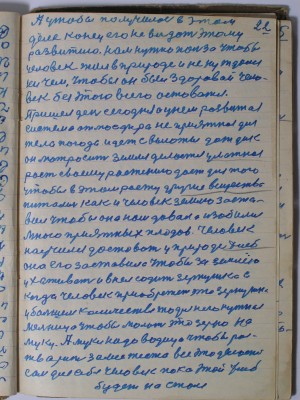 А чтобы получилось в этом
22
деле конец его не видат этому
развитию. нам нужно польза чтобы
человек жил в природе и не нуждался
ни чем, чтобы он был здоравай чело-
век без этого всего оставать.
Пришел ден сегодня однем развился
система атмосфера не приятная для
тела погода идет с высоты дождь как
он мотросит земля делается
раст своему растению даст для того
чтобы в этом расту другие вещества
питали как и человек землю заста-
вил чтобы она нам давал а изобили
много приятных плодов. Человек
научился достават у природе хлеб
она его заставила чтобы за землею
ухаживат в нея содит зернушко с
когда человек приобретет это зернушко
у большем количестве то для него нужна
мелница чтобы молот это зерно на
муку. А муки надо водица чтобы ра-
твариться замес теста все это делает
сам для себя человек пока этой хлеб
будет на столе